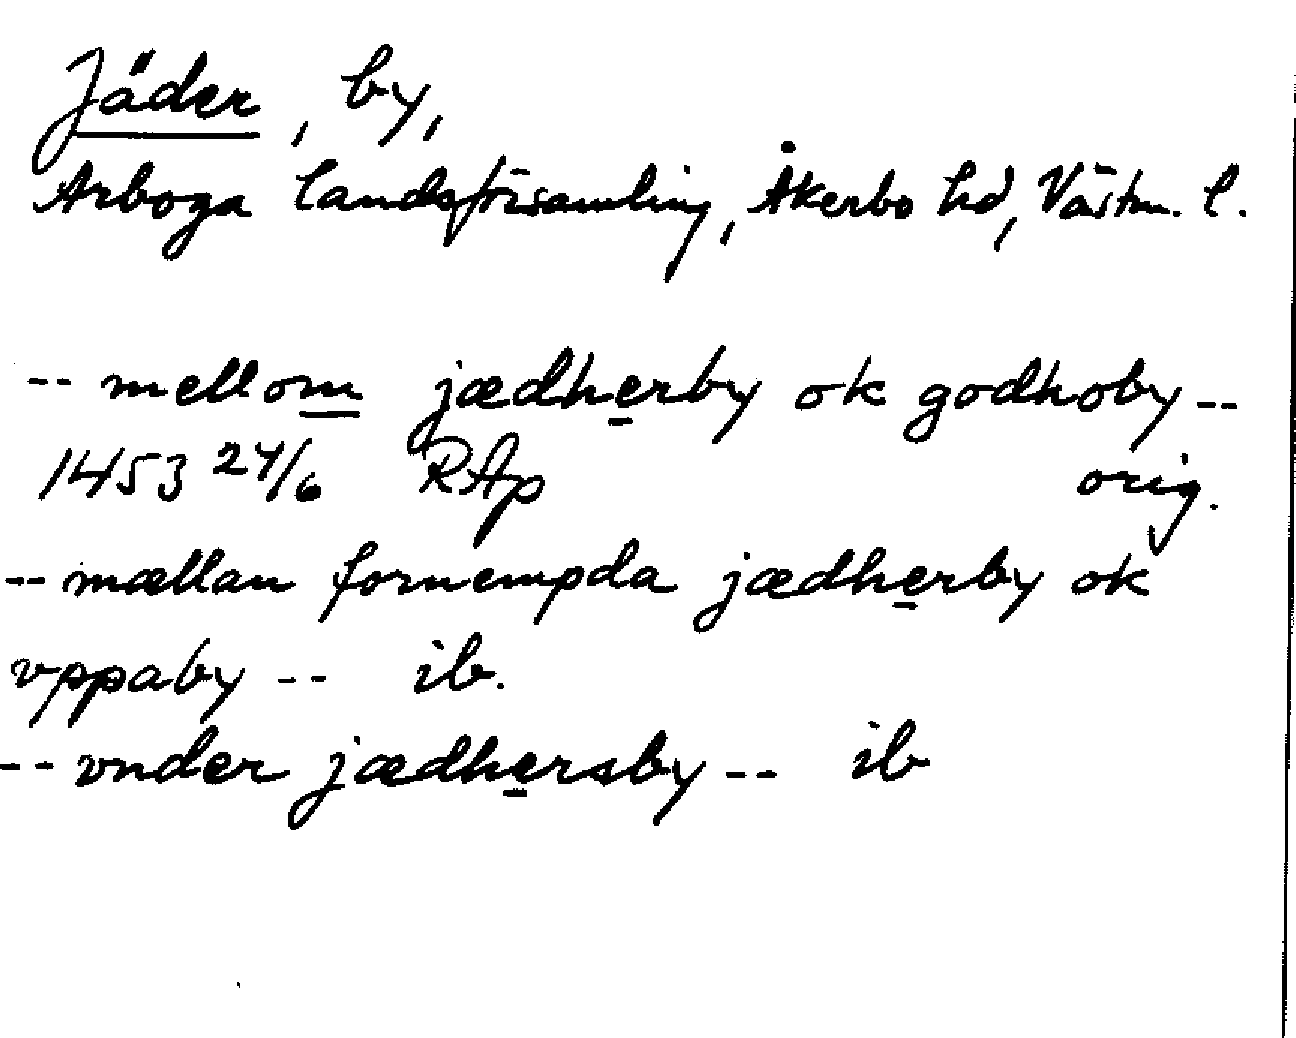 Jäder, by,
Arboga landsförsamling, Åkerbo hd, Västm. l.
-- mellom jædherby ok godhoby --
1453 24/6 RAp orig.
-- mællan fornempda jædherby ok
vppaby -- ib.
-- vnder jædhersby -- ib